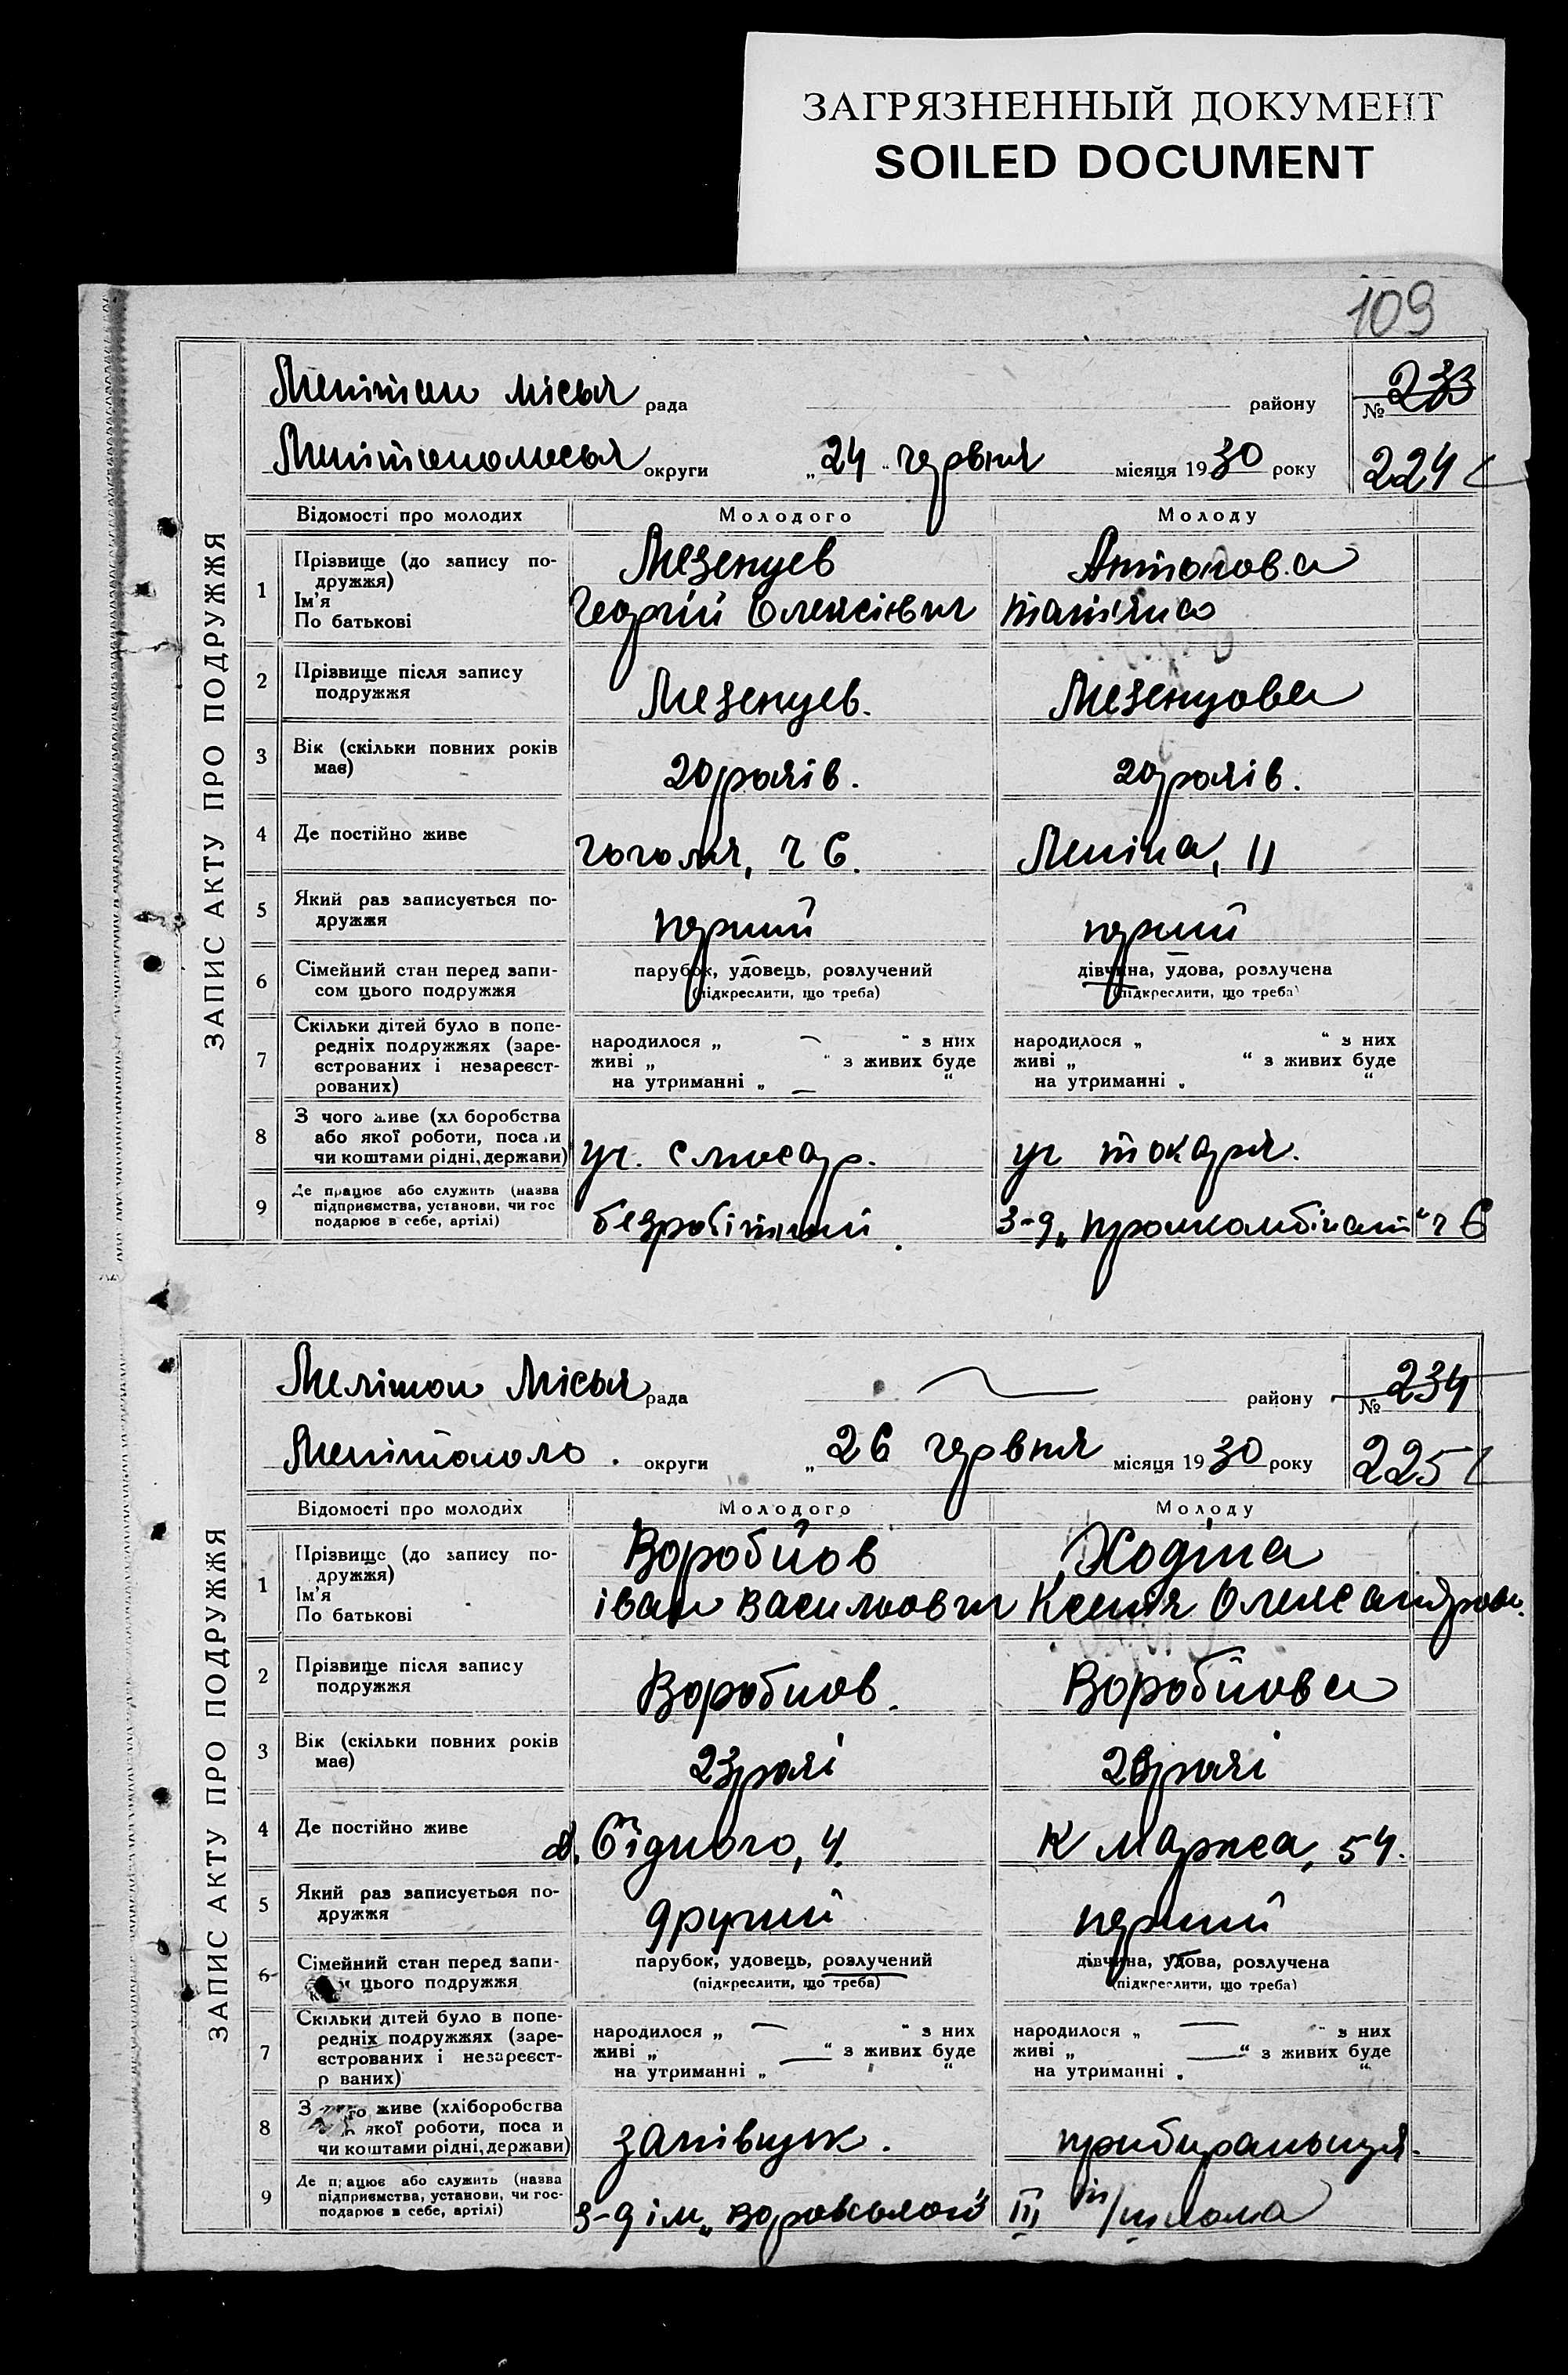 ЗАГРЯЗНЕННЫЙ ДОКУМЕНТ
SOILED DOCUMENT
109
ЗАПИС АКТУ ПРО ПОДРУЖЖЯ
Меліт міськ рада району № 233
Мелітопольськ округи „24“ червня місяця 1930 року 224
Відомості про молодих Молодого Молоду
1 Прізвище (до запису подружжя) Мезенцев Антонова
Ім'я
По батькові Георгій Олексієвич Татіяна
2 Прізвище після запису
подружжя Мезенцев. Мезенцова
3 Вік (скільки повних років
має) 20 років. 20 років.
4 Де постійно живе Гоголя, 26. Леніна, 11
5 Який раз записується по-
дружжя перший перший
6 Сімейний стан перед запи- парубок, удовець, розлучений дівчина, удова, розлучена
сом цього подружжя (підкреслити, що треба) (підкреслити, що треба)
7 Скільки дітей було в попе-
редніх подружжях (заре- народилося „ — “ з них народилося „ “ з них
єстрованих і незареєст- живі „ “ з живих буде живі „ “ з живих буде
рованих) на утриманні „ — “ на утриманні „ “
8 З чого живе (хл боробства
або якої роботи, поса и
чи коштами рідні, держави) уч. слюсар. уч токаря.
9 Де працює або служить (назва
підприємства, установи, чи гос
подарює в себе, артілі) безробітний. з-д „Промкомбінат“ 
ЗАПИС АКТУ ПРО ПОДРУЖЖЯ
Меліт Міськ рада — району № 234
Мелітополь. округи „26 червня місяця 1930 року 225
Відомості про молодих Молодого Молоду
1 Прізвище (до запису по-
дружжя) Воробйов
Ім'я
По батькові Іван Васильович Ксенія Олександров.
2 Прізвище після запису
подружжя Воробйов. Воробйова
3 Вік (скільки повних років
має) 23 рокі 23 рокі
4 Де постійно живе Д. Бідного, 4. К Маркса, 54.
5 Який раз записується по-
дружжя другий перший
6 Сімейний стан перед запи- парубок, удовець, розлучений дівчина, удова, розлучена
цього подружжя (підкреслити, що треба) (підкреслити, що треба)
7 Скільки дітей було в попе-
редніх подружжях (заре- народилося „ — “ з них народилося „ — “ з них
єстрованих і незареєст- живі „ — “ з живих буде живі „ — “ з живих буде
р ваних) на утриманні „ “ на утриманні „ “
8 З живе (хліборобства
якої роботи, поса и
чи коштами рідні, держави) прибиральниця.
9 Де п ацює або служить (назва
підприємства, установи, чи гос-
подарює в себе, артілі) з-д ім „Воровського“ III школа